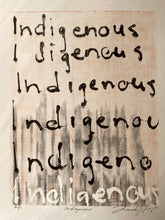 Indigenous
I digenous
Indigenous
Indigenou
Indigeno
Indigenous
Indigenous